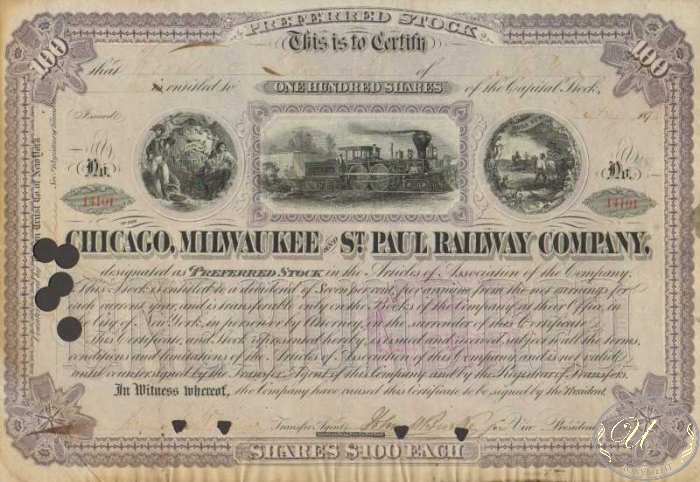 PREFERRED STOCK
100 This is to Certify 100
that of
is entitled to ONE HUNDRED SHARES of the Capital Stock,
Issued 187
No. No.
14101 14101
OF THE
CHICAGO, MILWAUKEE AND ST. PAUL RAILWAY COMPANY,
designated as PREFERRED STOCK in the Articles of Association of the Company.
This Stock is entitled to a dividend of Seven per cent. per annum from the net earnings for
each current year, and is transferable only on the Books of the Company at their Office, in
the City of New York, in person or by Attorney, on the surrender of this Certificate.
This Certificate, and Stock represented hereby, is issued and received subject to all the terms,
conditions and limitations of the Articles of Association of this Company, and is not valid
until countersigned by the Transfer Agent of this Company and by the Registrar of Transfers.
In Witness whereof, the Company have caused this Certificate to be signed by the President
Transfer Agent Vice President
100 SHARES $100 EACH 100